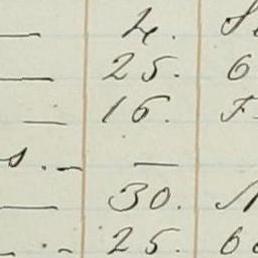 — 4. S
— 25. 6
— 16. F
s. - —
— 30. N
. - 25. 60